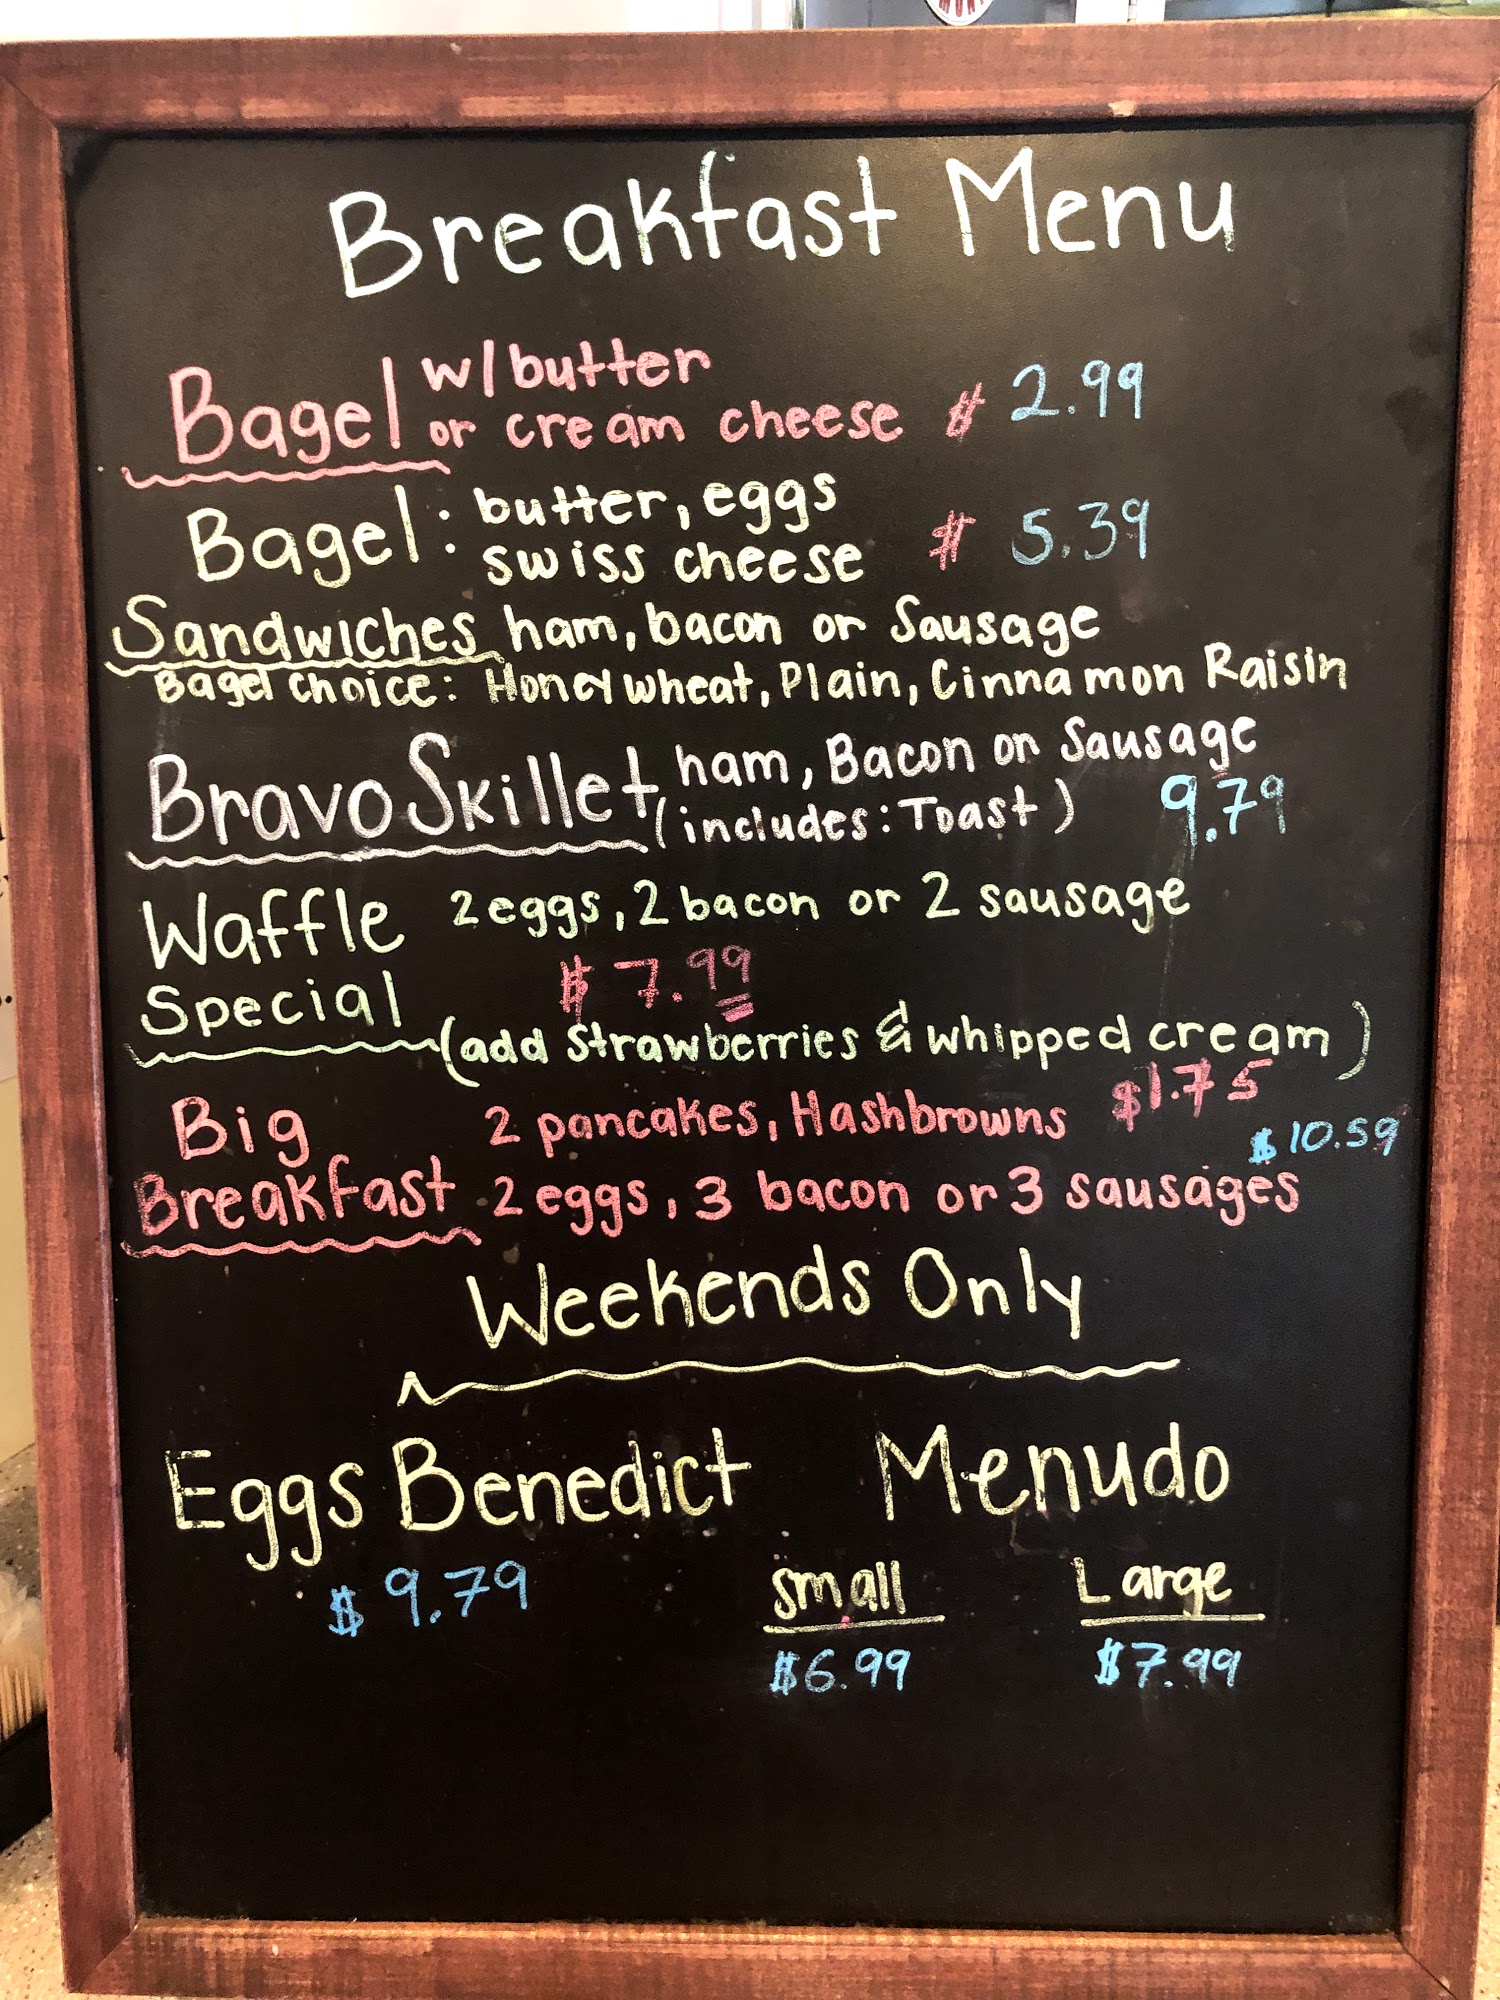 Breakfast Menu
Bagel w/butter
or cream cheese $ 2.99
Bagel: butter, eggs
swiss cheese $ 5.39
Sandwiches ham, bacon or Sausage
Bagel choice: Honey wheat, Plain, Cinnamon Raisin
Bravo Skillet ham, Bacon or Sausage
(includes: Toast) 9.79
Waffle 2 eggs, 2 bacon or 2 sausage
Special $ 7.99
(add strawberries & whipped cream)
$1.75
Big 2 pancakes, Hashbrowns
$10.59
Breakfast 2 eggs, 3 bacon or 3 sausages
Weekends Only
Eggs Benedict Menudo
$ 9.79 Small Large
$6.99 $7.99